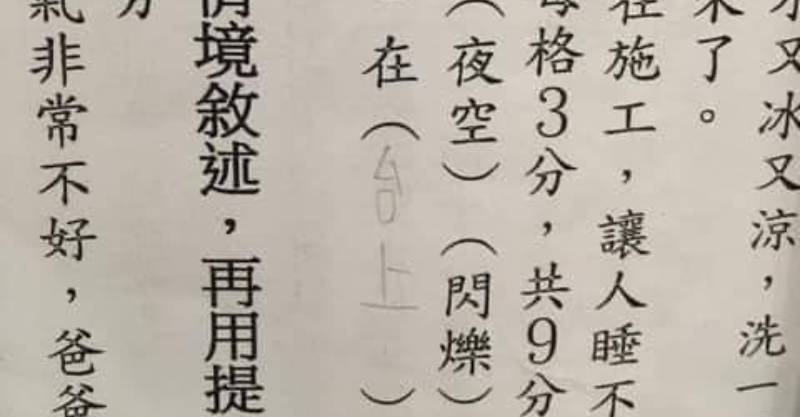 水又冰又涼，洗一
來了。
在施工，讓人睡不
每格3分，共9分
（夜空）（閃爍）
在（台上）
情境敘述，再用提
方
氣非常不好，爸爸